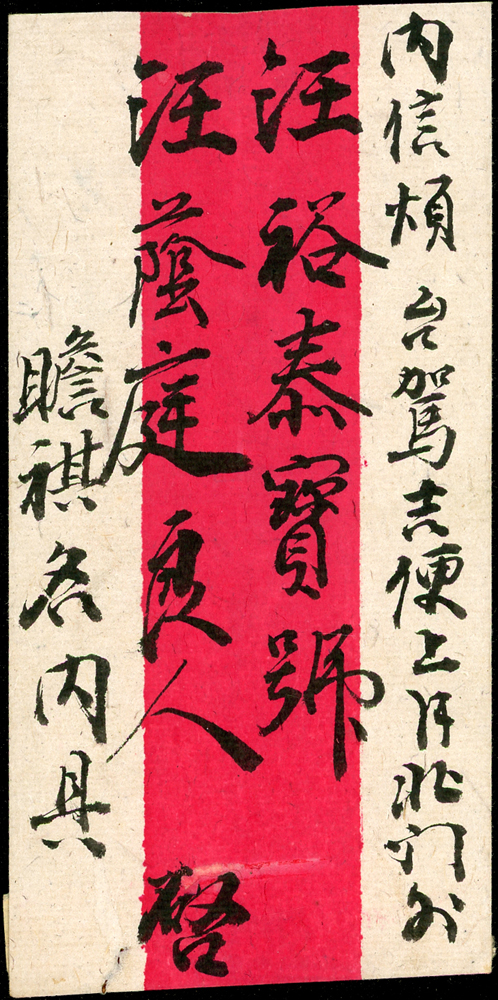 內信煩 台駕吉便上洋北門外
汪裕泰寶號
汪蔭庭 夫人 啓
瞻祺名內具